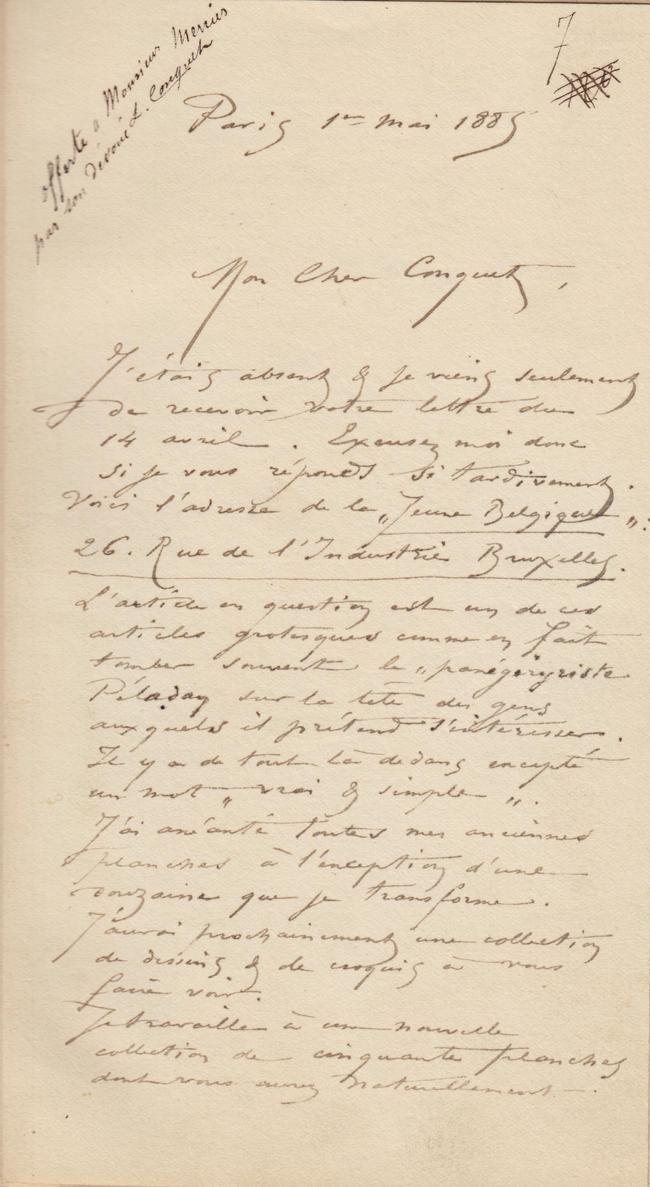 offerte a Monsieur Mercier
par son dévoué L. Conquet
7
Paris 1er Mai 1885
Mon Cher Conquet,
J'étais absent & je viens seulement
de recevoir votre lettre du
14 avril. Excusez moi donc
si je vous réponds si tardivement.
Voici l'adresse de la „Jeune Belgique„:
26. Rue de l'Industrie Bruxelles.
L'article en question est un de ces
articles grotesques comme en fait
tomber souvent le „panégyriste
Péladan sur la tête des gens
auxquels il prétend s'intéresser.
Il y a de tout là dedans excepté
un mot „vrai & simple„.
J'ai anéanti toutes mes anciennes
planches à l'exception d'une
douzaine que je transforme.
J'aurai prochainement une collection
de dessins & de croquis à vous
faire voir.
Je travaille à une nouvelle
collection de cinquante planches
dont vous aurez naturellement